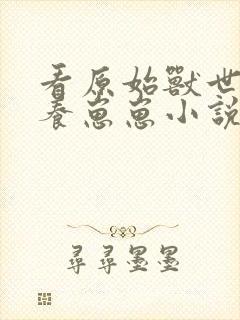 看原始獸世
養崽崽小說
尋尋墨墨